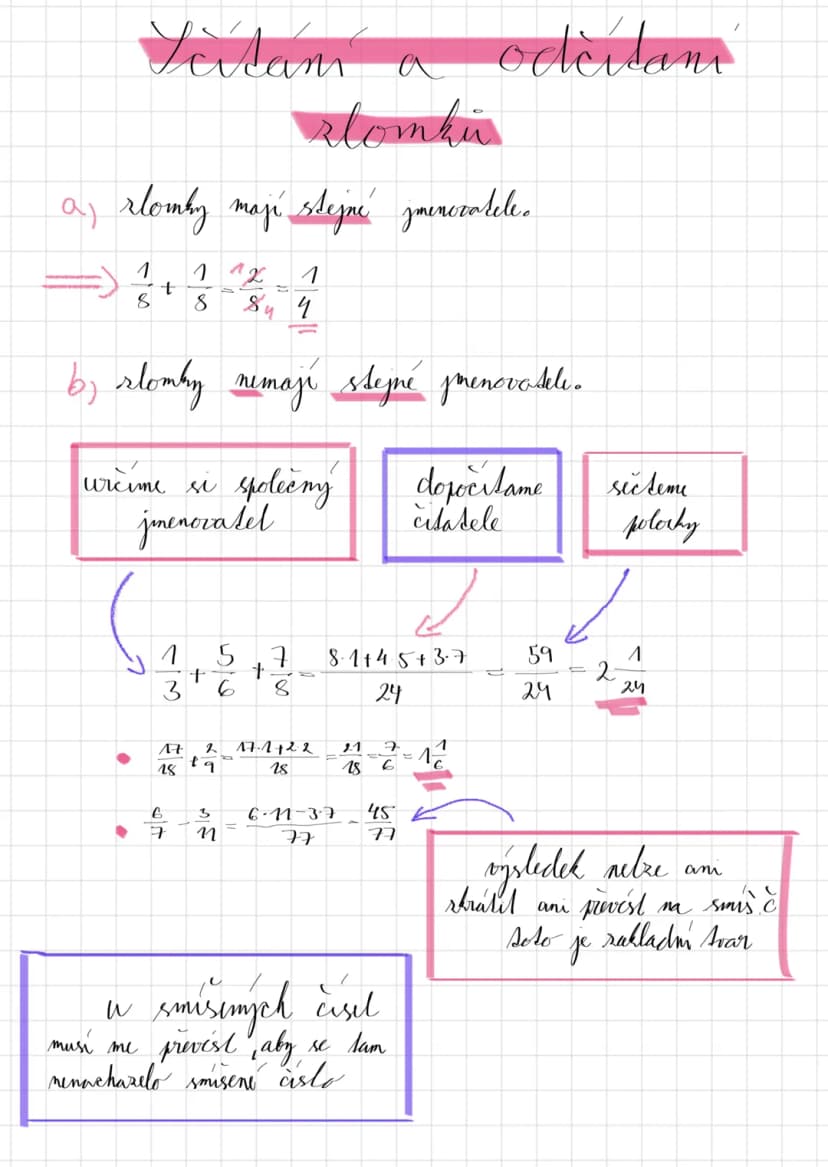 Sčítání a odčítaní
zlomků
a) zlomky mají stejné jmenovatele.
⇒ 1/8 + 1/8 = 2/8 = 1/4
b) zlomky nemají stejné jmenovatele.
určíme si společný
jmenovatel
dopočítame
čitatele
sečteme
polozky
1/3 + 5/6 + 7/8 = (8·1+4 5+3·7)/24 = 59/24 = 2 1/24
• 17/18 + 2/9 = (17·1+2 2)/18 = 21/18 = 7/6 = 1 1/6
• 6/7 - 3/11 = (6·11-3·7)/77 - 45/77
výsledek nelze ani
zkrátit ani převést na smíš. č
toto je zakladní tvar
U smíšených čísel
musí me převést, aby se tam
nenachazelo smíšené číslo